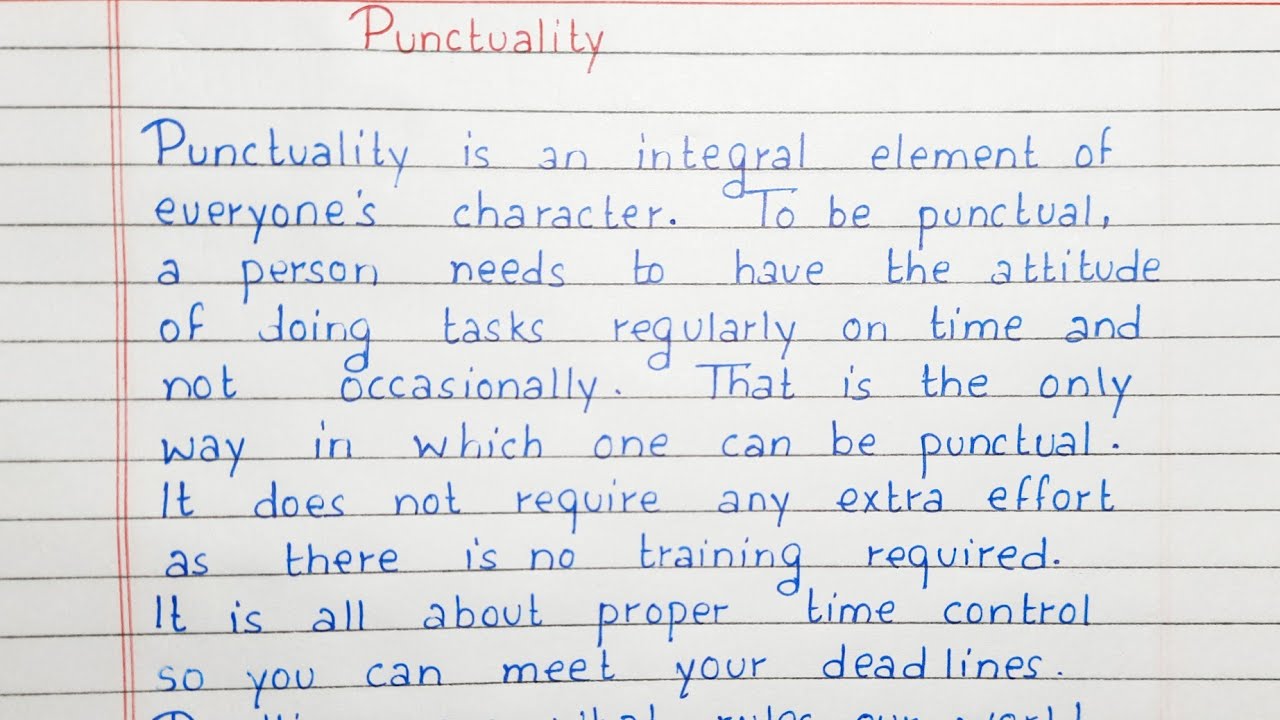 Punctuality
Punctuality is an integral element of
everyone's character. To be punctual,
a person needs to have the attitude
of doing tasks regularly on time and
not occasionally. That is the only
way in which one can be punctual.
It does not require any extra effort
as there is no training required.
It is all about proper time control
so you can meet your deadlines.